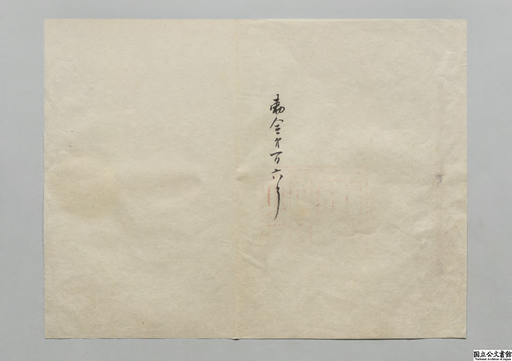 勅令第百六号
国立公文書館
National Archives of Japan